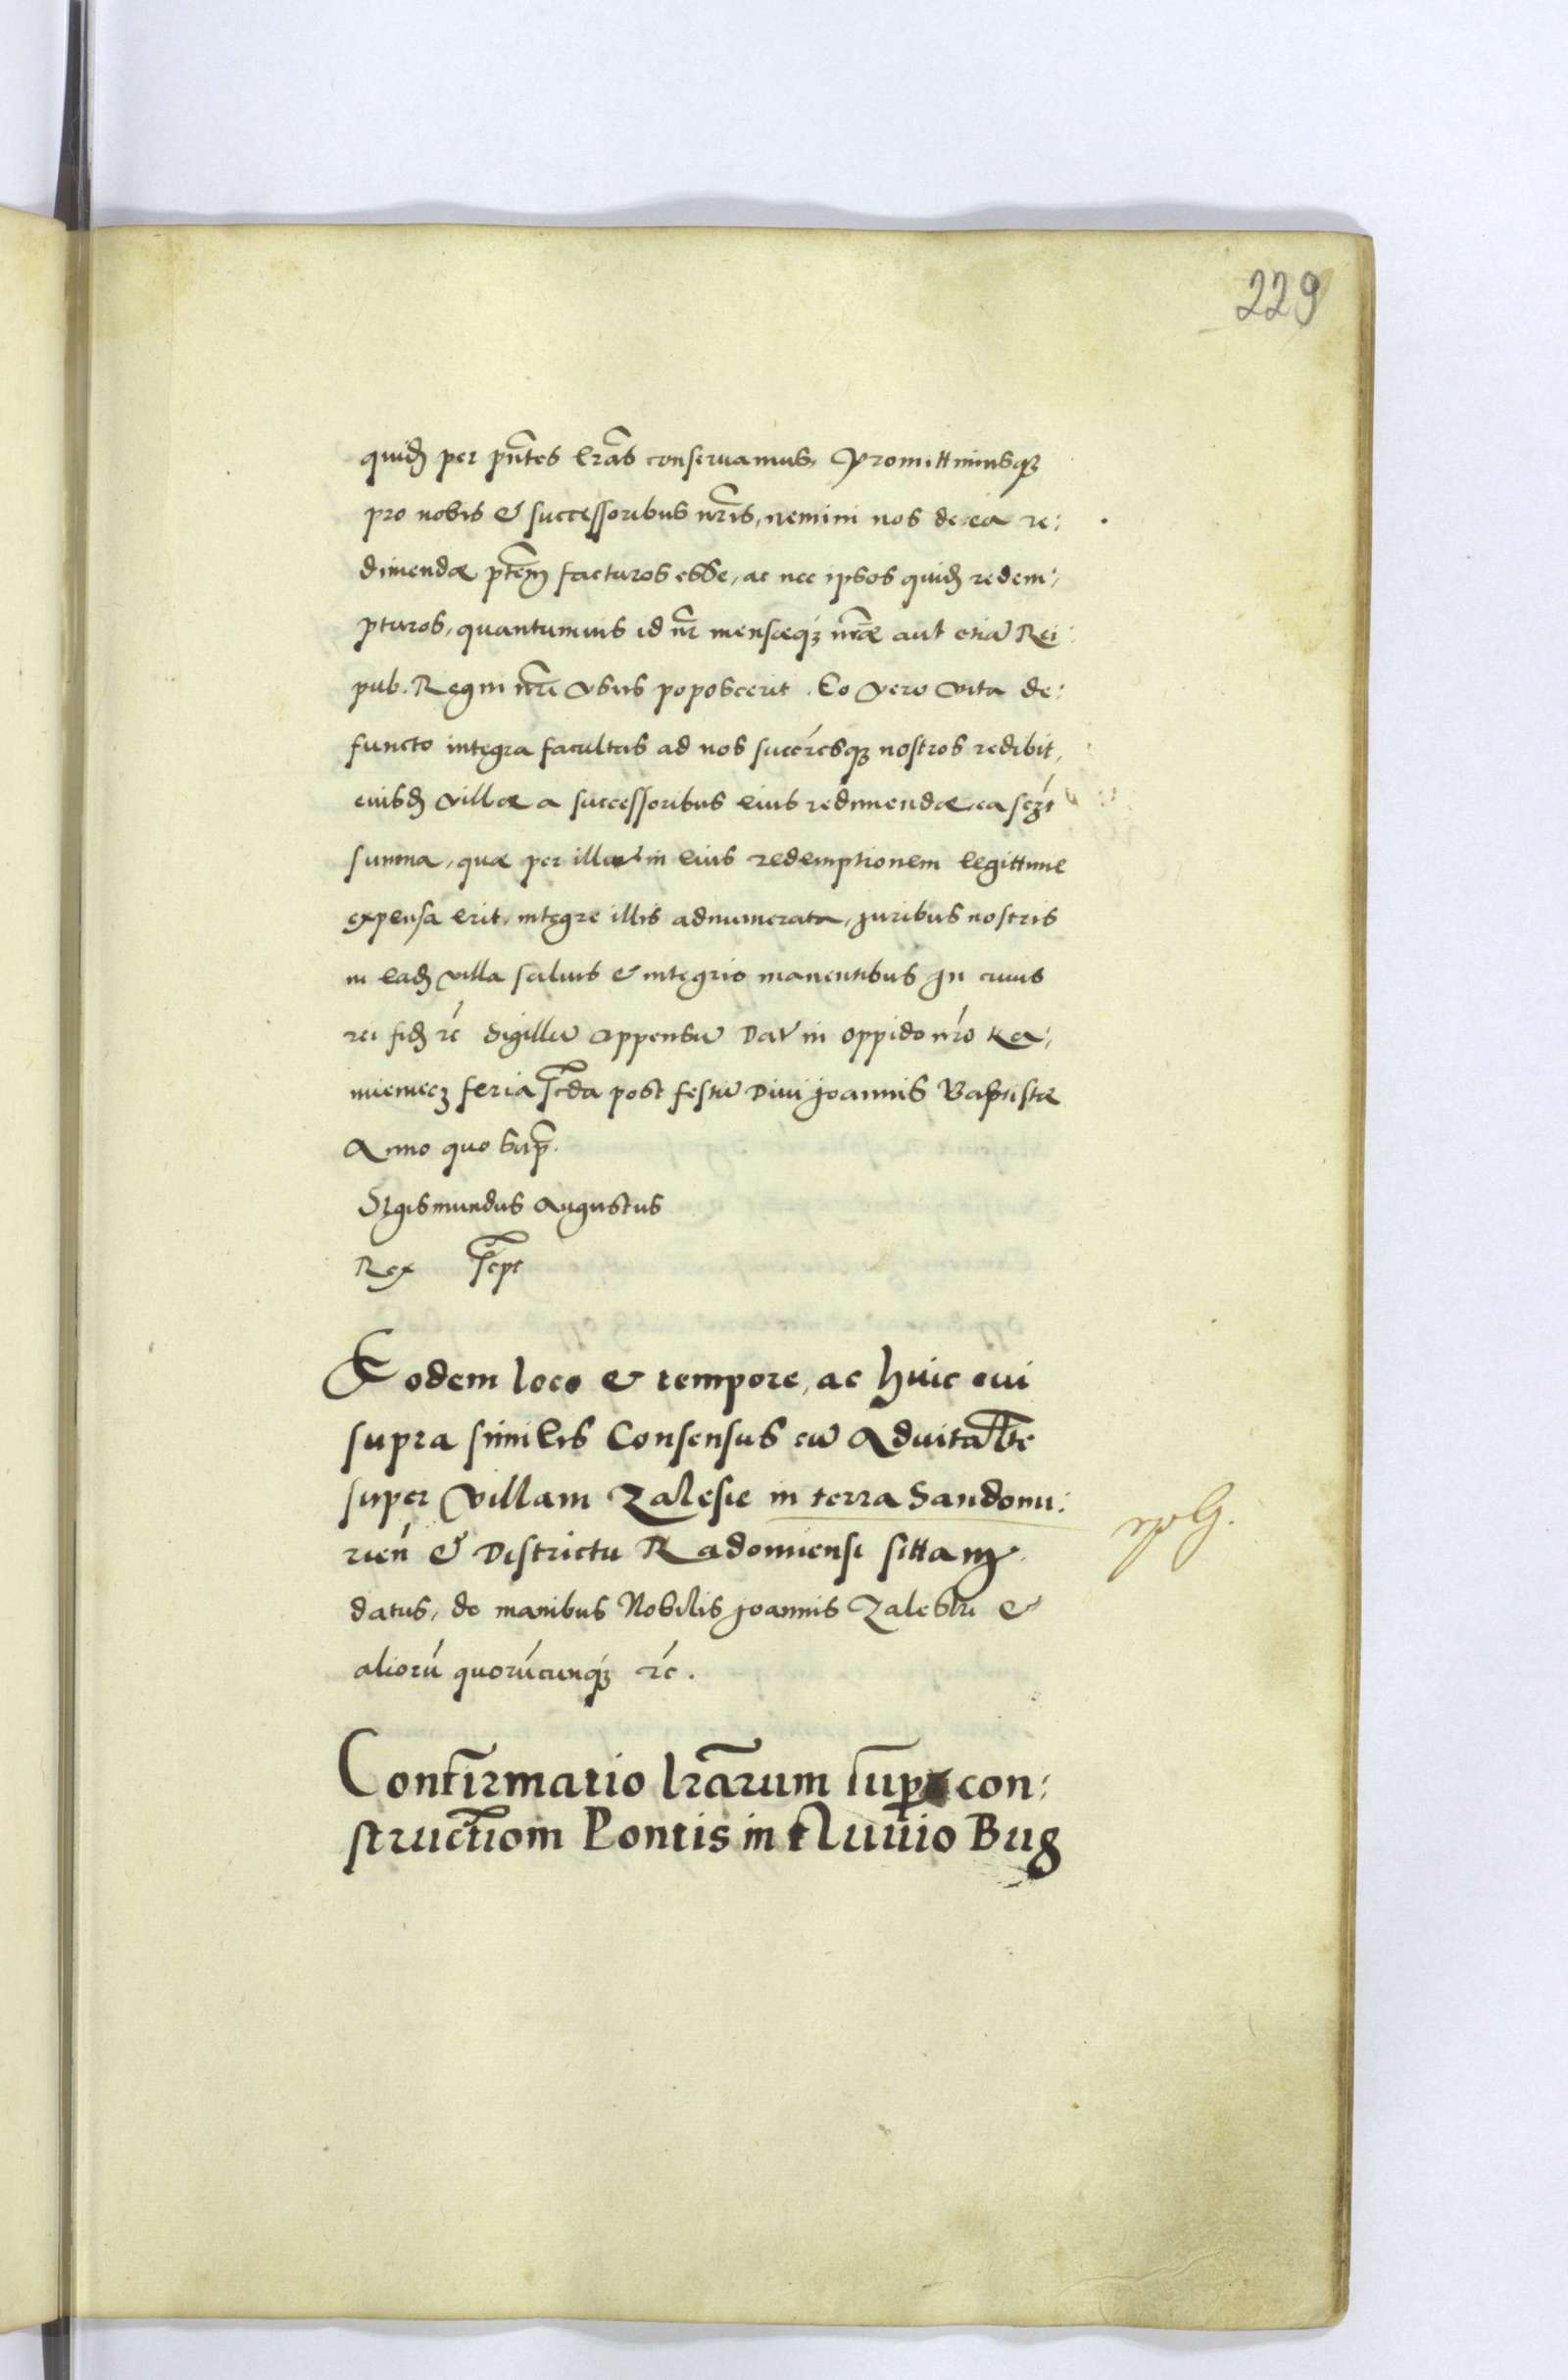 229
quidẽ per pñtes lrãs conseruamus, Promittimusq;
pro nobis & successoribus nrĩs, nemini nos de ea re:
dimendæ ptẽm facturos esse, ac nec ipsos quidẽ redem:
pturos, quantumuis id nr̃ mensæq; nr̃æ aut etiã Rei:
pub. Regni nr̃i vsus poposcerit. Eo vero vita de:
functo integra facultas ad nos succr̃esq; nostros redibit,
eiusdẽ villæ a successoribus eius redimendæ, ea scz̃t
summa, quæ per illũ in eius redemptionem legittime
expensa erit, integre illis adnumerata, juribus nostris
in eadẽ villa saluis & integris manentibus Jn cuius
rei fidẽ rc̃ Sigillũ appensũ Dat̃ in oppido nr̃o Ka:
mieniecz feria scda post festũ Diui Joannis Baptistæ
Anno quo sup̃.
Sigismundus Augustus
Rex sc̃pt
Eodem loco & tempore, ac huic cui
supra similis Consensus cũ Aduitalte
super villam Zalesie in terra Sandomi:
rieñ & Districtu Radomiensi sittam
rpG.
datus, de manibus Nobilis Joannis Zaleski &
aliorũ quorũcunq; rc̃.
Confirmatio lrãrum sup con:
structiom Pontis in fluuio Bug